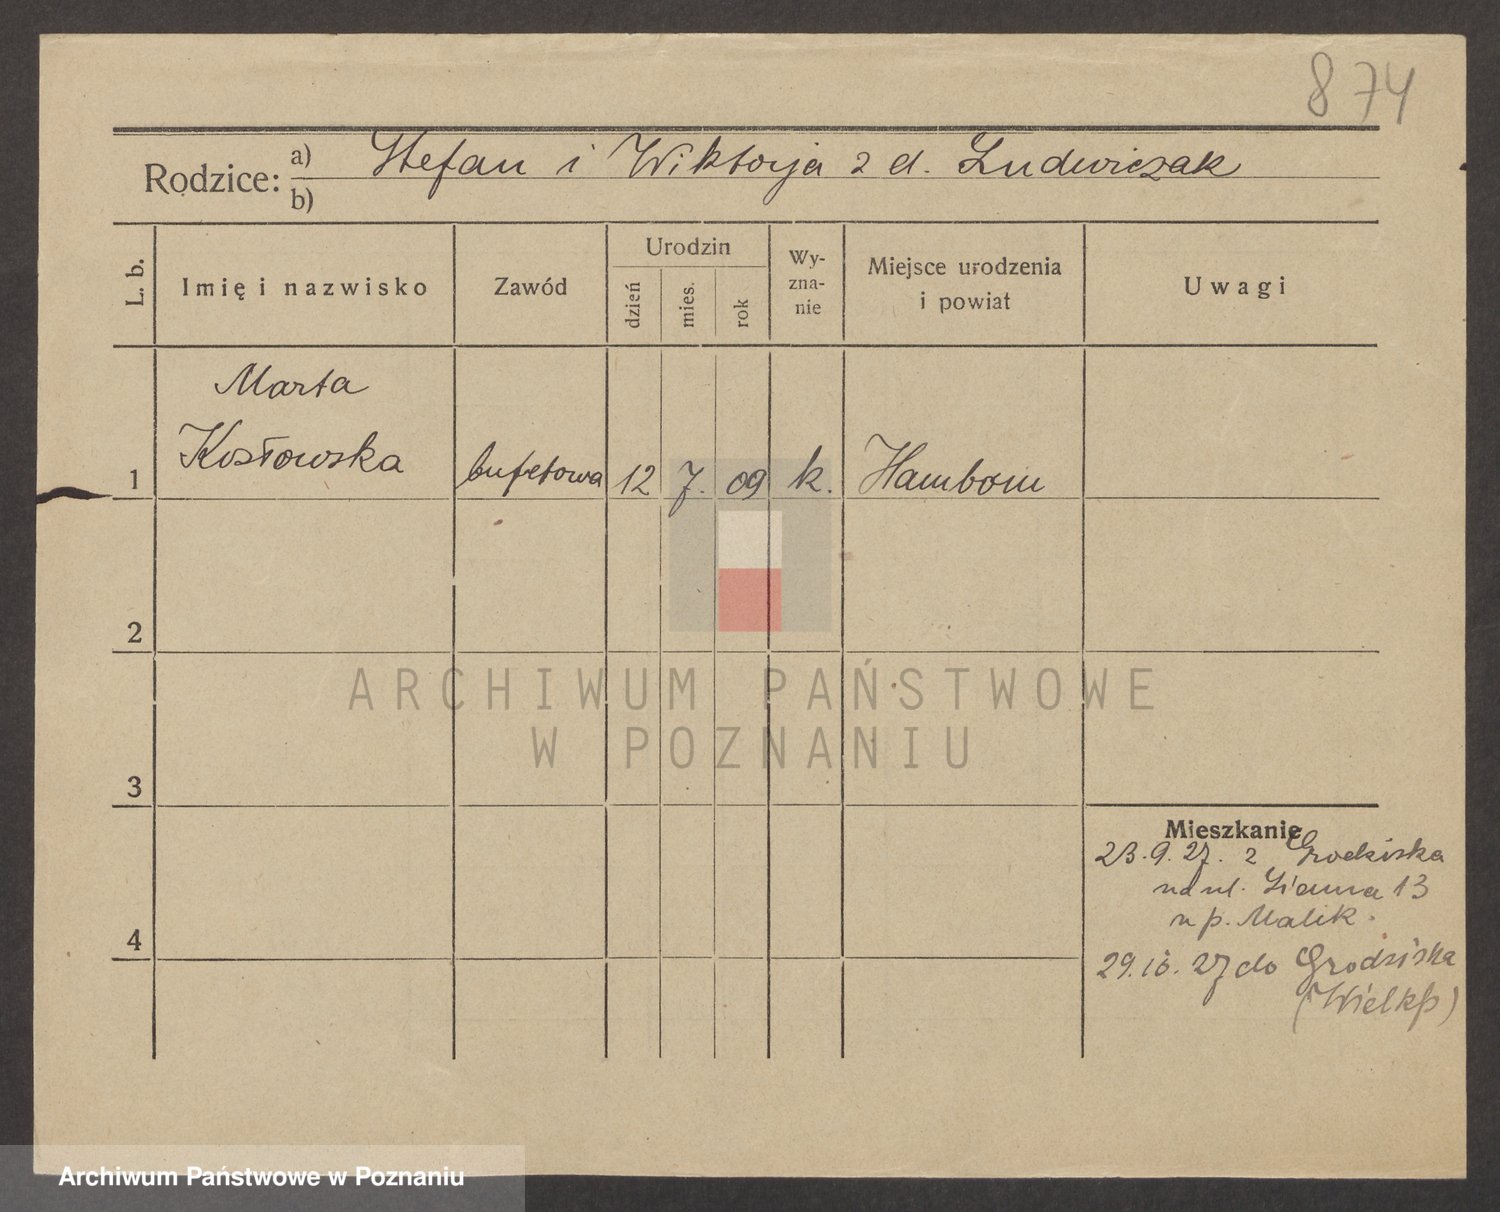 874
Rodzice: a) Stefan i Wiktorja z d. Ludwiczak
b)
L. b. Imię i nazwisko Zawód Urodzin dzień mies. rok Wy-zna-nie Miejsce urodzenia i powiat Uwagi
Marta
1 Kosłowska bufetowa 12 7. 09 k. Hamborn
2
ARCHIWUM PAŃSTWOWE
W POZNANIU
3
Mieszkanie
23.9.27. z Grodziska
na ul. 13
u p. Malik.
4
29.10.27 do Grodziska
(Wielkp)
Archiwum Państwowe w Poznaniu